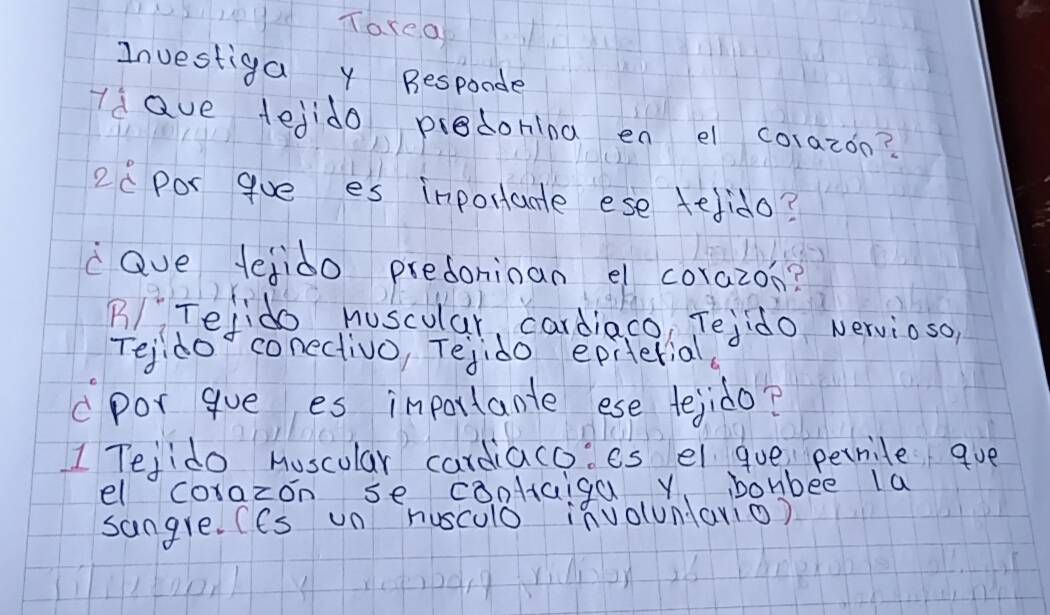 Tarea
Investiga y Responde
1¿ Que tejido predomina en el corazón?
2¿ Por que es importante ese tejido?
¿ Que tejido predominan el corazón?
R/ Tejido muscular cardiaco, Tejido Nervioso,
Tejido conectivo, Tejido epiterial.
¿ por que es importante ese tejido?
1 Tejido Muscular cardiaco: es el que permite que
el corazón se contraiga y bombee la
sangre. (Es un musculo involuntario)